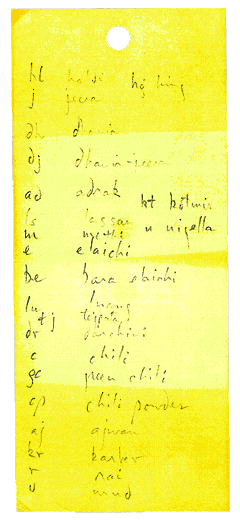 hl haldi hg hing
j jeera
dh dhania
dj dhania-jeera
ad adrak kt kotmir
ls lassan n nigella
m methi
e elaichi
be bara elaichi
lu luang
tj tejpata
dr darchini
c chili
gc green chili
cp chili powder
aj ajwan
kr karher
r rai
mud